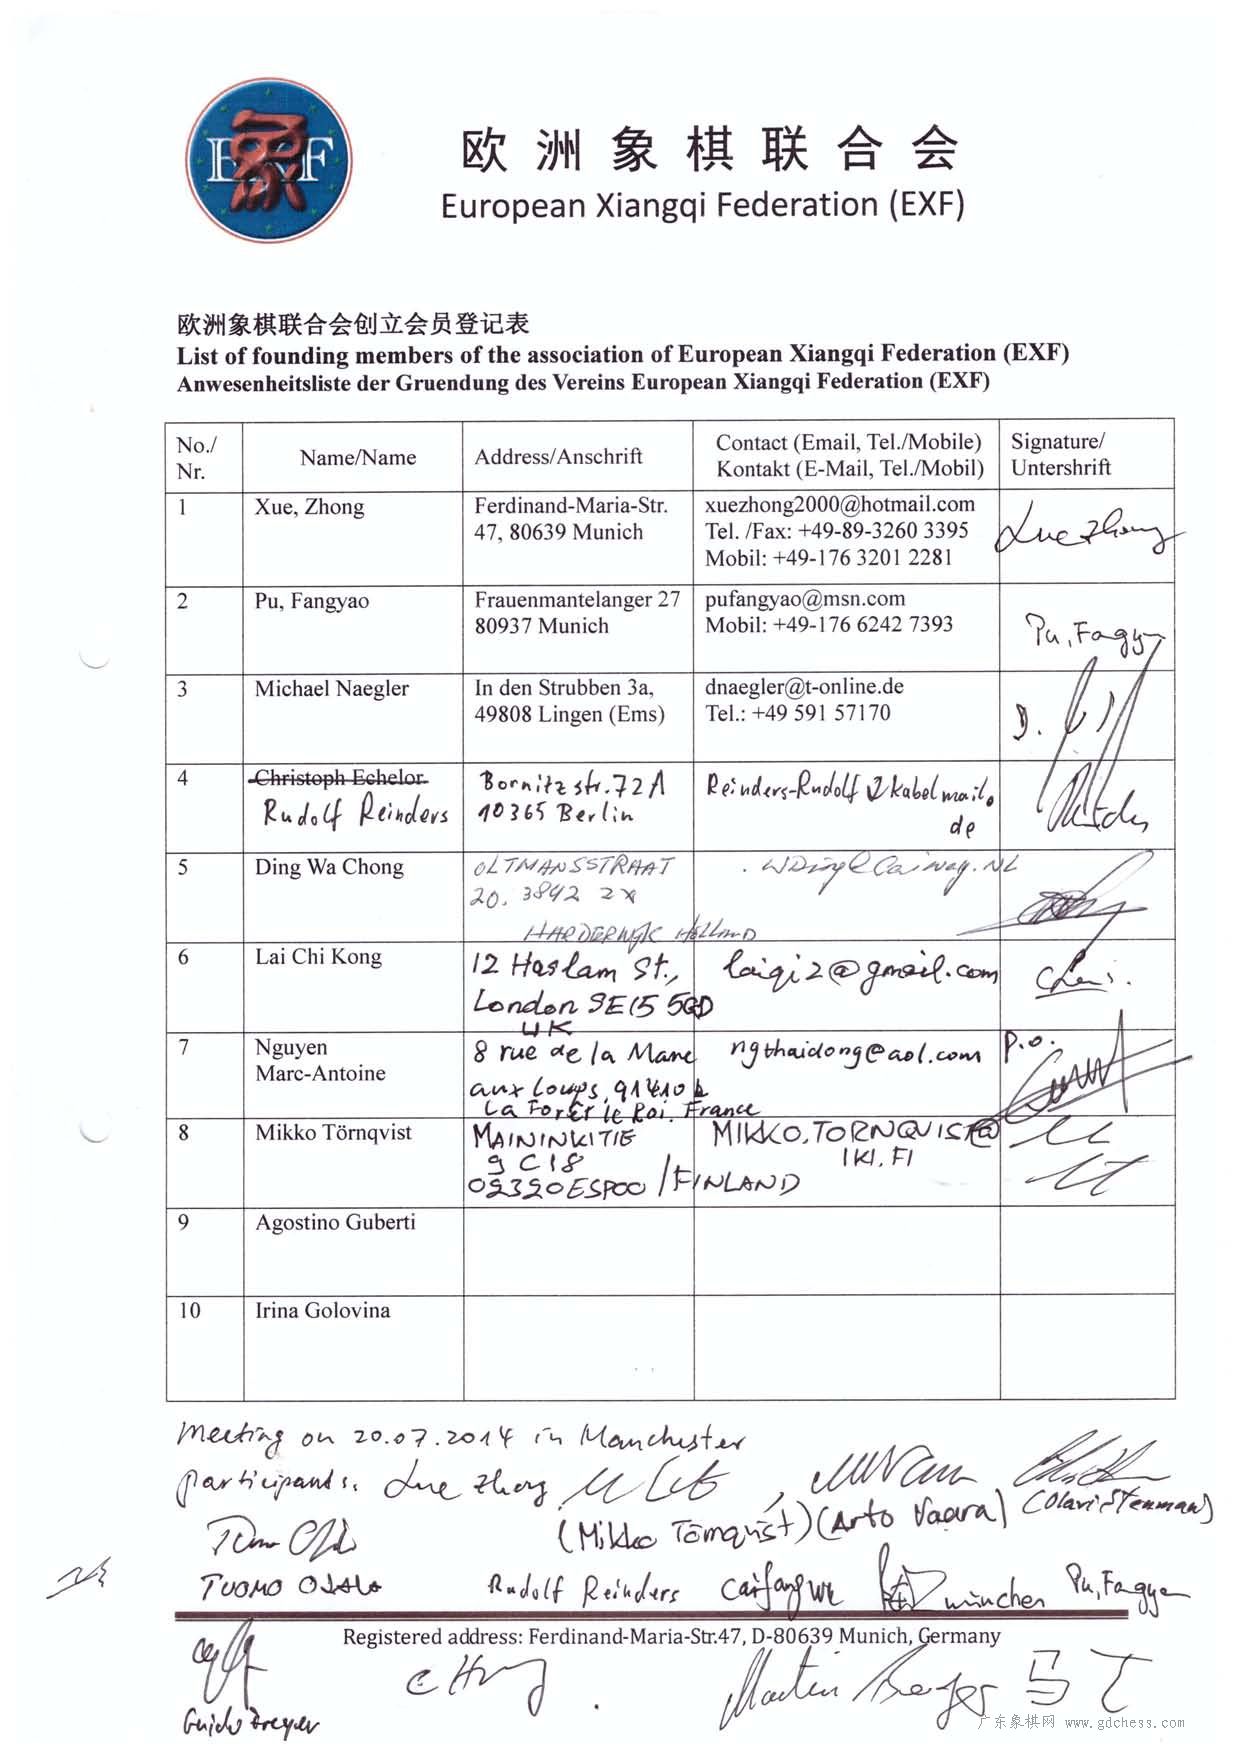 E象F
欧洲象棋联合会
European Xiangqi Federation (EXF)
欧洲象棋联合会创立会员登记表
List of founding members of the association of European Xiangqi Federation (EXF)
Anwesenheitsliste der Gruendung des Vereins European Xiangqi Federation (EXF)
No./ Nr.
Name/Name
Address/Anschrift
Contact (Email, Tel./Mobile)
Kontakt (E-Mail, Tel./Mobil)
Signature/
Untershrift
1
Xue, Zhong
Ferdinand-Maria-Str.
47, 80639 Munich
xuezhong2000@hotmail.com
Tel. /Fax: +49-89-3260 3395
Mobil: +49-176 3201 2281
Xue Zhong
2
Pu, Fangyao
Frauenmantelanger 27
80937 Munich
pufangyao@msn.com
Mobil: +49-176 6242 7393
Pu, Fangyao
3
Michael Naegler
In den Strubben 3a,
49808 Lingen (Ems)
dnaegler@t-online.de
Tel.: +49 591 57170
4
Christoph Echelor
Rudolf Reinders
Bornitzstr. 72A
10365 Berlin
Reinders-Rudolf@kabelmail.
de
5
Ding Wa Chong
OLTMANSSTRAAT
20. 3842 2x
HARDERWIJK HOLLAND
WDing@Caiway.NL
6
Lai Chi Kong
12 Haslam St.,
London SE15 5GD
UK
laiqi2@gmail.com
7
Nguyen
Marc-Antoine
8 rue de la Mare
aux loups, 91410
La Forêt le Roi. France
ngthaidong@aol.com
p.o.
8
Mikko Törnqvist
MAININKITIE
9 C 18
02320 ESPOO / FINLAND
MIKKO.TORNQVIST@
IKI.FI
9
Agostino Guberti
10
Irina Golovina
Meeting on 20.07.2014 in Manchester
participants: Xue Zhong,
(Mikko Törnqvist) (Arto Vaara) (Olavi Stenman)
TUOMO OJALA
Rudolf Reinders Caifang Wu München Pu, Fangyao
Registered address: Ferdinand-Maria-Str.47, D-80639 Munich, Germany
Guido Dreyer
Martin Berger 马丁
广东象棋网 www.gdchess.com